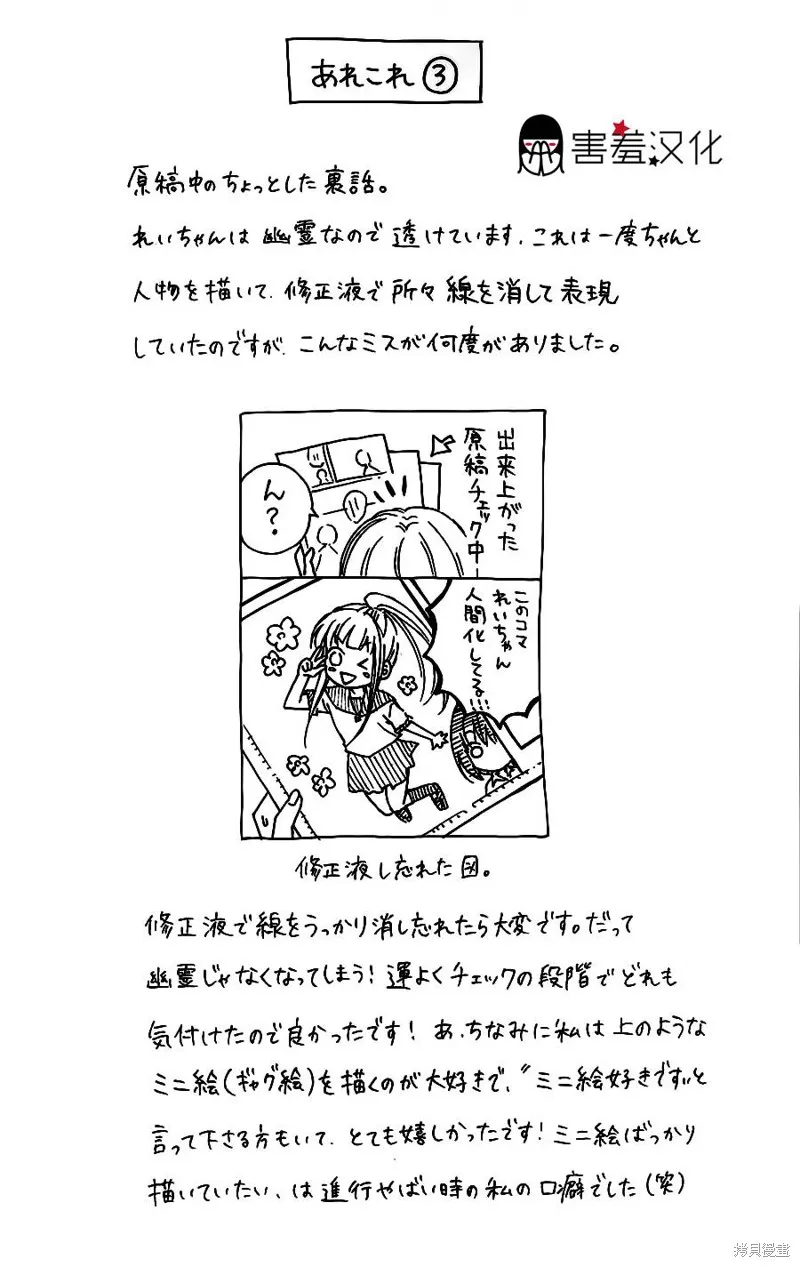 あれこれ③
害羞汉化
原稿中のちょっとした裏話。
れいちゃんは幽霊なので透けています、これは一度ちゃんと
人物を描いて、修正液で所々線を消して表現
していたのですが、こんなミスが何度がありました。
出来上がった
原稿チェック中
ん?
このコマ
れいちゃん
人間化してる!!!
修正液し忘れた図。
修正液で線をうっかり消し忘れたら大変です。だって
幽霊じゃなくなってしまう!運よくチェックの段階でどれも
気付けたので良かったです! あ、ちなみに私は上のような
ミニ絵(ギャグ絵)を描くのが大好きで、〝ミニ絵好きです〟と
言って下さる方もいて、とても嬉しかったです!ミニ絵ばっかり
描いていたい、は進行やばい時の私の口癖でした(笑)
拷貝漫畫